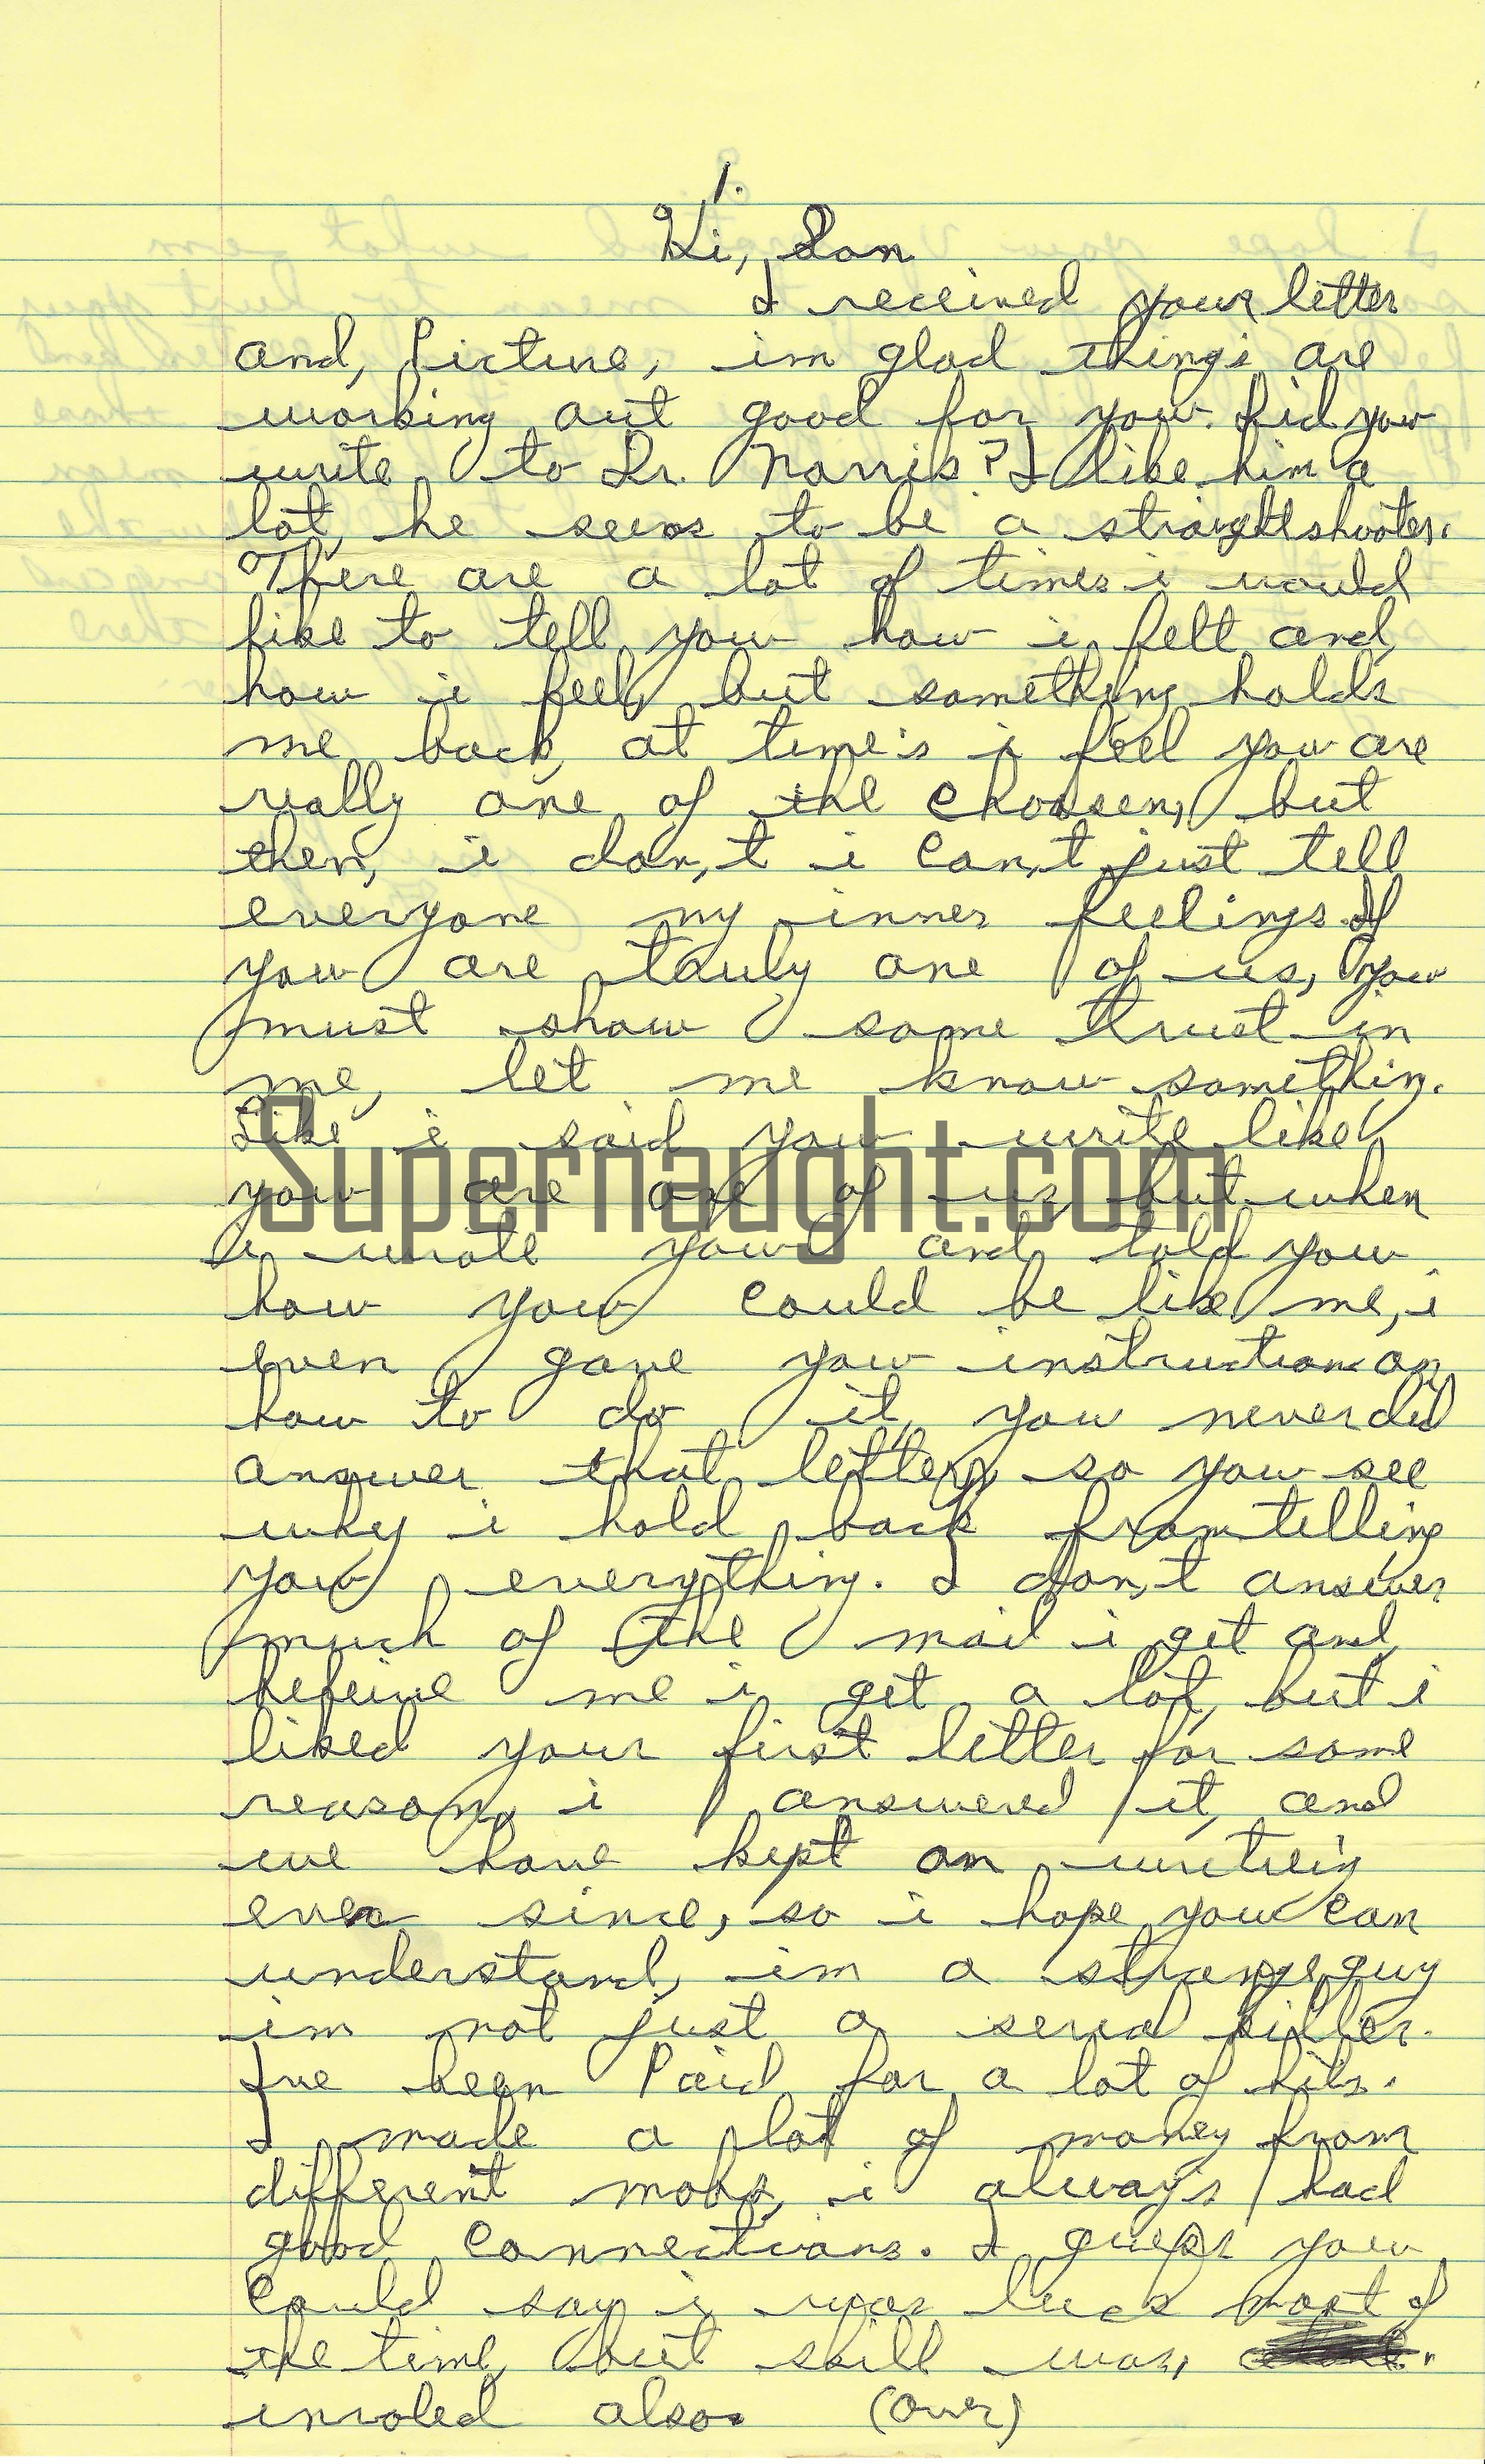 1.
Hi, Son
I received your letter
and, Picture, im glad thing's are
working out good for you. Did you
write to Dr. Norris? I like him a
lot, he seems to be a straight shooter.
There are a lot of times i would
like to tell you how i felt and,
how i feel, but something holds
me back, at time's i feel you are
really one of the choosen, but
then, i don,t i can,t just tell
everyone my inner feelings. If
you are truly one of us, you
must show some trust in
me, let me know somethin.
Like i said you write like
you are one of us but when
i wrote you and told you
how you could be like me, i
even gave you instruction on
how to do it, you never did
answer that letter, so you see
why i hold back from telling
you everything. I don,t answer
much of the mail i get and,
beleive me i get a lot, but i
liked your first letter for some
reason, i answered it, and
we have kept on writeing
ever since, so i hope you can
understand, im a strange guy
im not just a serial killer.
I've been Paid for a lot of hits.
I made a lot of money from
different mobs, i alway's had
good connections. I guess you
could say i was luck most of
the time, but skill was,
involed also. (over)
Supernaught.com